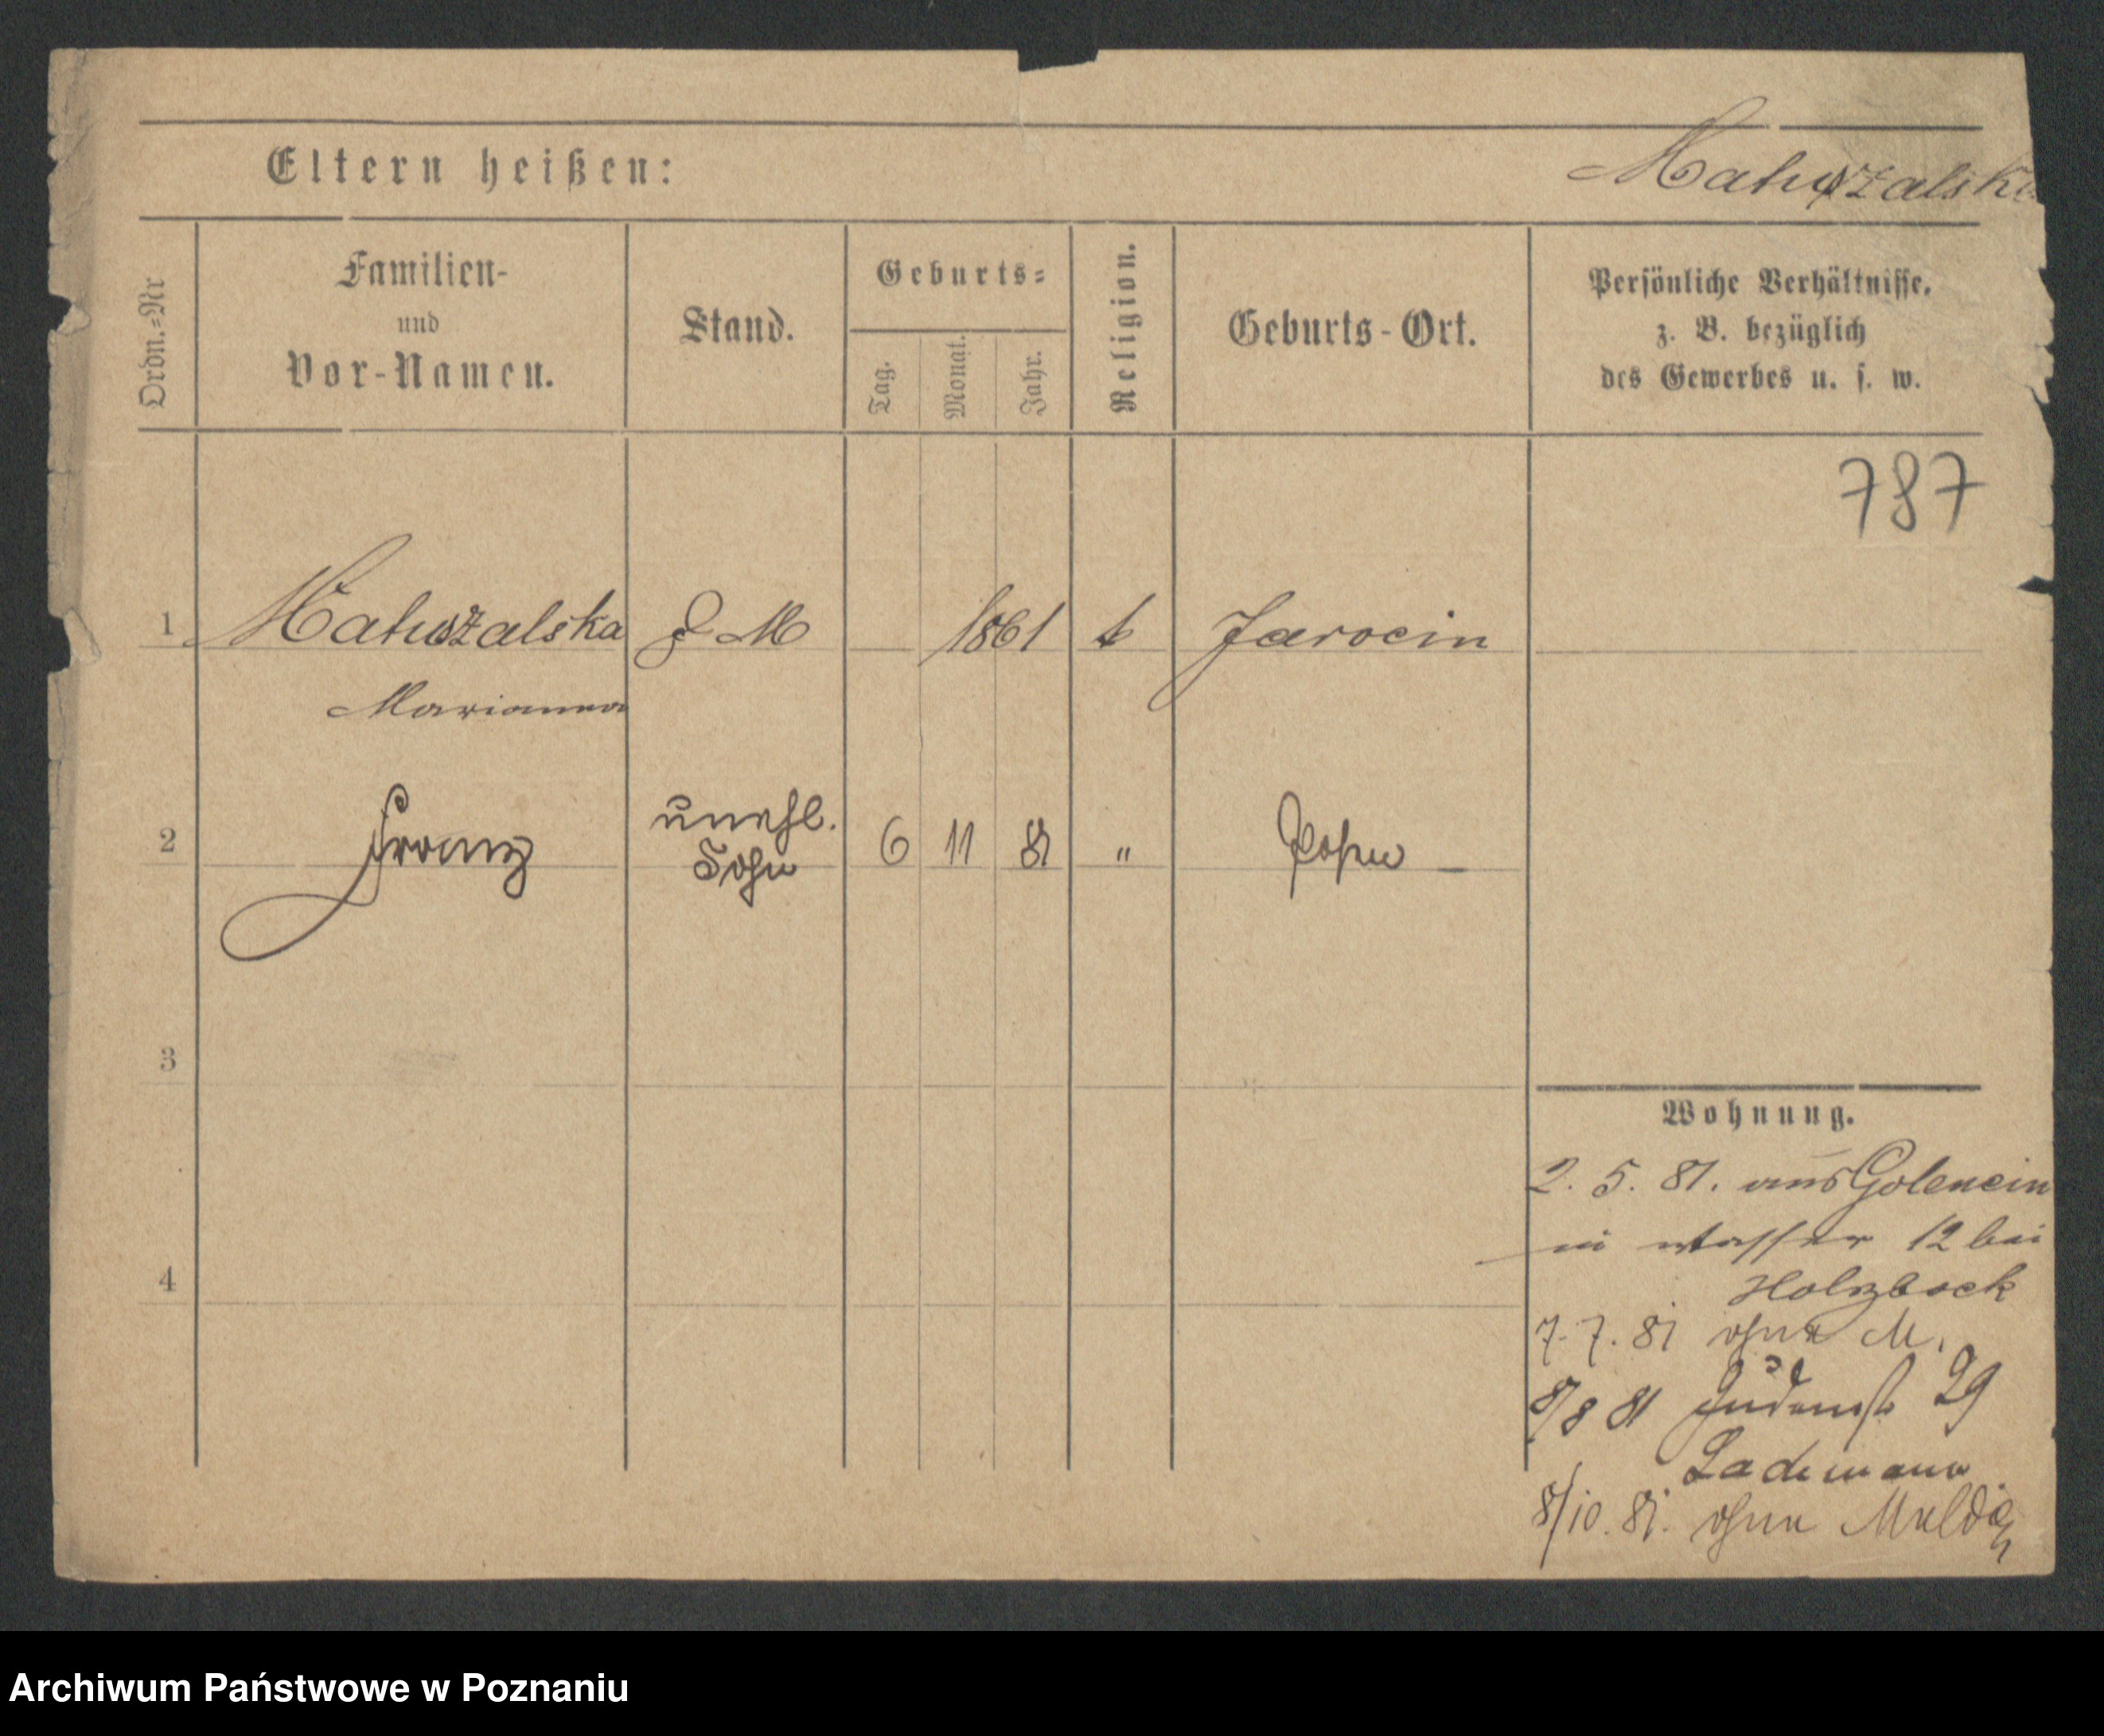 Eltern heißen:
Matuszalska
Ordn.=Nr
Familien-
und
Vor-Namen.
Stand.
Geburts=
Tag.
Monat.
Jahr.
Religion.
Geburts-Ort.
Persönliche Verhältnisse.
z. B. bezüglich
des Gewerbes u. s. w.
787
1 Matuszalska M 1861 k Jarocin
Marianna
2 Franz unehl. 6 11 81 " Posen
Sohn
3
4
Wohnung.
2. 5. 81. aus Golencin
in Wasser 12 bei
Holzbock
7. 7. 81 ohne M.
8/8 81 Judenst 29
Lademann
8/10. 81. ohne Meldg
Archiwum Państwowe w Poznaniu